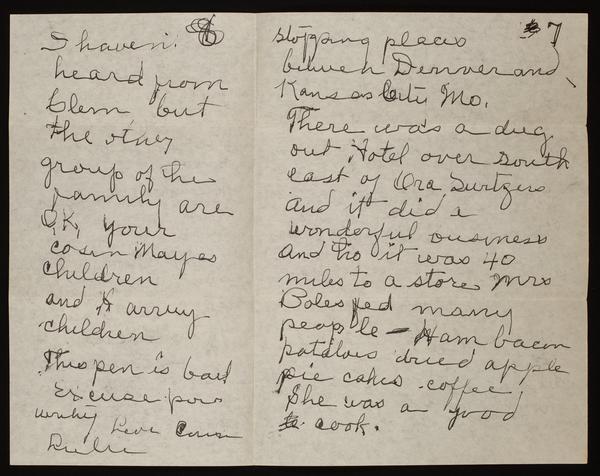 I haven't
heard from
Clem but
the other
group of the
family are
O,K, your
cosin Mayes
children
and Harvey
children
This pen is bad
Excuse poor
writing Love Cousin
7
stopping places
between Denver and
Kansas City Mo.
There was a dug
out Hotel over south
east of Ora
and it did a
wonderful business
and tho it was 40
miles to a store Mrs
Boles fed many
people - Ham bacon
potatoes dried apple
pie cakes coffee
She was a good
cook.